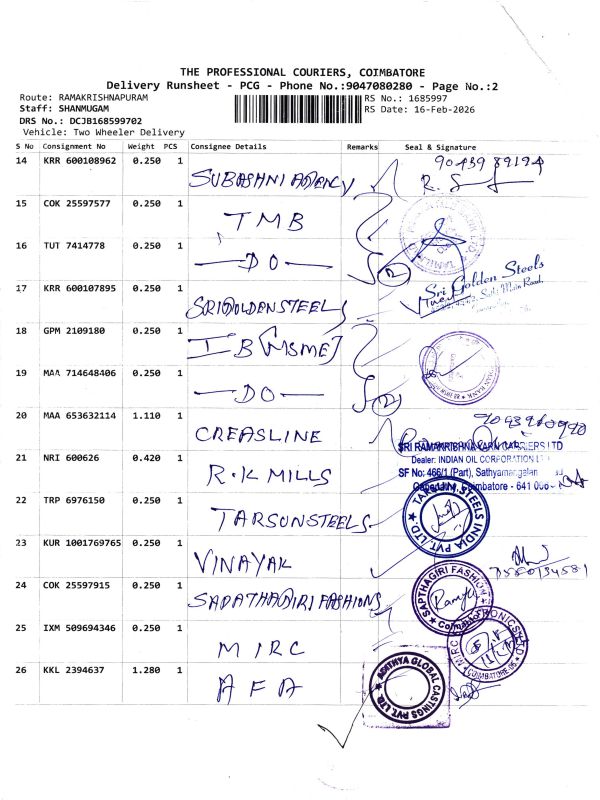 THE PROFESSIONAL COURIERS, COIMBATORE
Delivery Runsheet - PCG - Phone No.:9047080280 - Page No.:2
Route: RAMAKRISHNAPURAM
Staff: SHANMUGAM
DRS No.: DCJB168599702
Vehicle: Two Wheeler Delivery
RS No.: 1685997
RS Date: 16-Feb-2026
S No Consignment No Weight PCS Consignee Details Remarks Seal & Signature
14 KRR 600108962 0.250 1 SUBASHNI AGENCY
15 COK 25597577 0.250 1 TMB
16 TUT 7414778 0.250 1 —DO— 2
Sri Golden Steels
17 KRR 600107895 0.250 1 SRI GOLDEN STEELS
18 GPM 2109180 0.250 1 IB [MSME]
19 MAA 714648406 0.250 1 —DO— 2
20 MAA 653632114 1.110 1 CREASLINE
SRI RAMAKRISHNA KARN CARRIERS LTD
Dealer: INDIAN OIL CORPORATION
SF No: 466/1 (Part), Sathyamangalam
Coimbatore - 641 006
21 NRI 600626 0.420 1 R.K MILLS
22 TRP 6976150 0.250 1 TARSUN STEELS
TARSUN STEELS INDIA PVT. LTD.
23 KUR 1001769765 0.250 1 VINAYAK
24 COK 25597915 0.250 1 SAPATHAGIRI FASHIONS
SAPTHAGIRI FASHION
Coimbatore
25 IXM 509694346 0.250 1 MIRC
26 KKL 2394637 1.280 1 AFA
ADITHYA GLOBAL CASTINGS PVT. LTD.